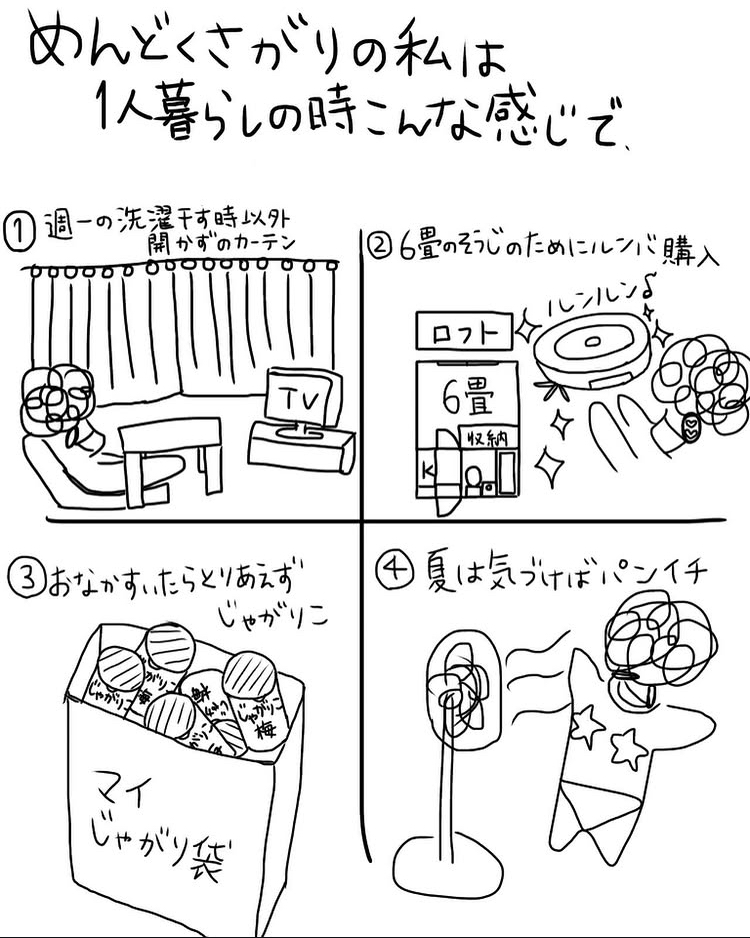 めんどくさがりの私は
1人暮らしの時こんな感じで、
① 週一の洗濯干す時以外
開かずのカーテン
TV
② 6畳のそうじのためにルンバ購入
ルンルン♪
ロフト
6畳
収納
K
③ おなかすいたらとりあえず
じゃがりこ
じゃがりこ
じゃがりこ
梅
じゃがりこ
梅
マイ
じゃがり袋
④ 夏は気づけばパンイチ